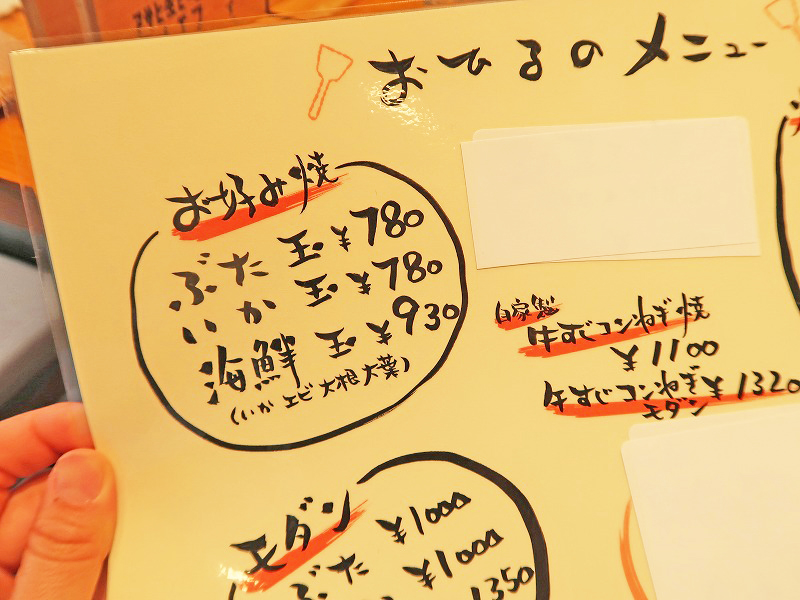 おひるのメニュー
お好み焼
ぶた玉 ¥780
いか玉 ¥780
海鮮玉 ¥930
(いか エビ 大根 大葉)
自家製
牛すじコンねぎ焼
¥1100
牛すじコンねぎ ¥1320
モダン
モダン
ぶた ¥1000
¥1000
1350